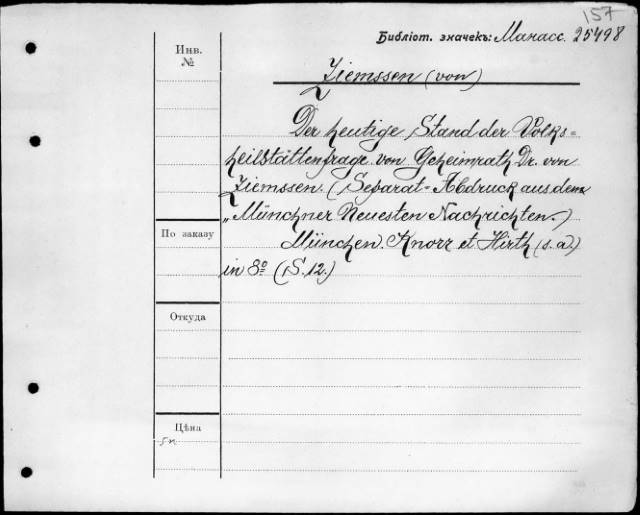 157
Библіот. значекъ: Манасс. 25498
Инв.
№
Ziemssen (von)
Der heutige Stand der Volks=
heilstättenfrage von Geheimrath Dr. von
Ziemssen. (Separat-Abdruck aus den
„Münchner Neuesten Nachrichten.)
По заказу
München. Knorr et Hirth (s. a)
in 8º (S. 12.)
Откуда
Цѣна